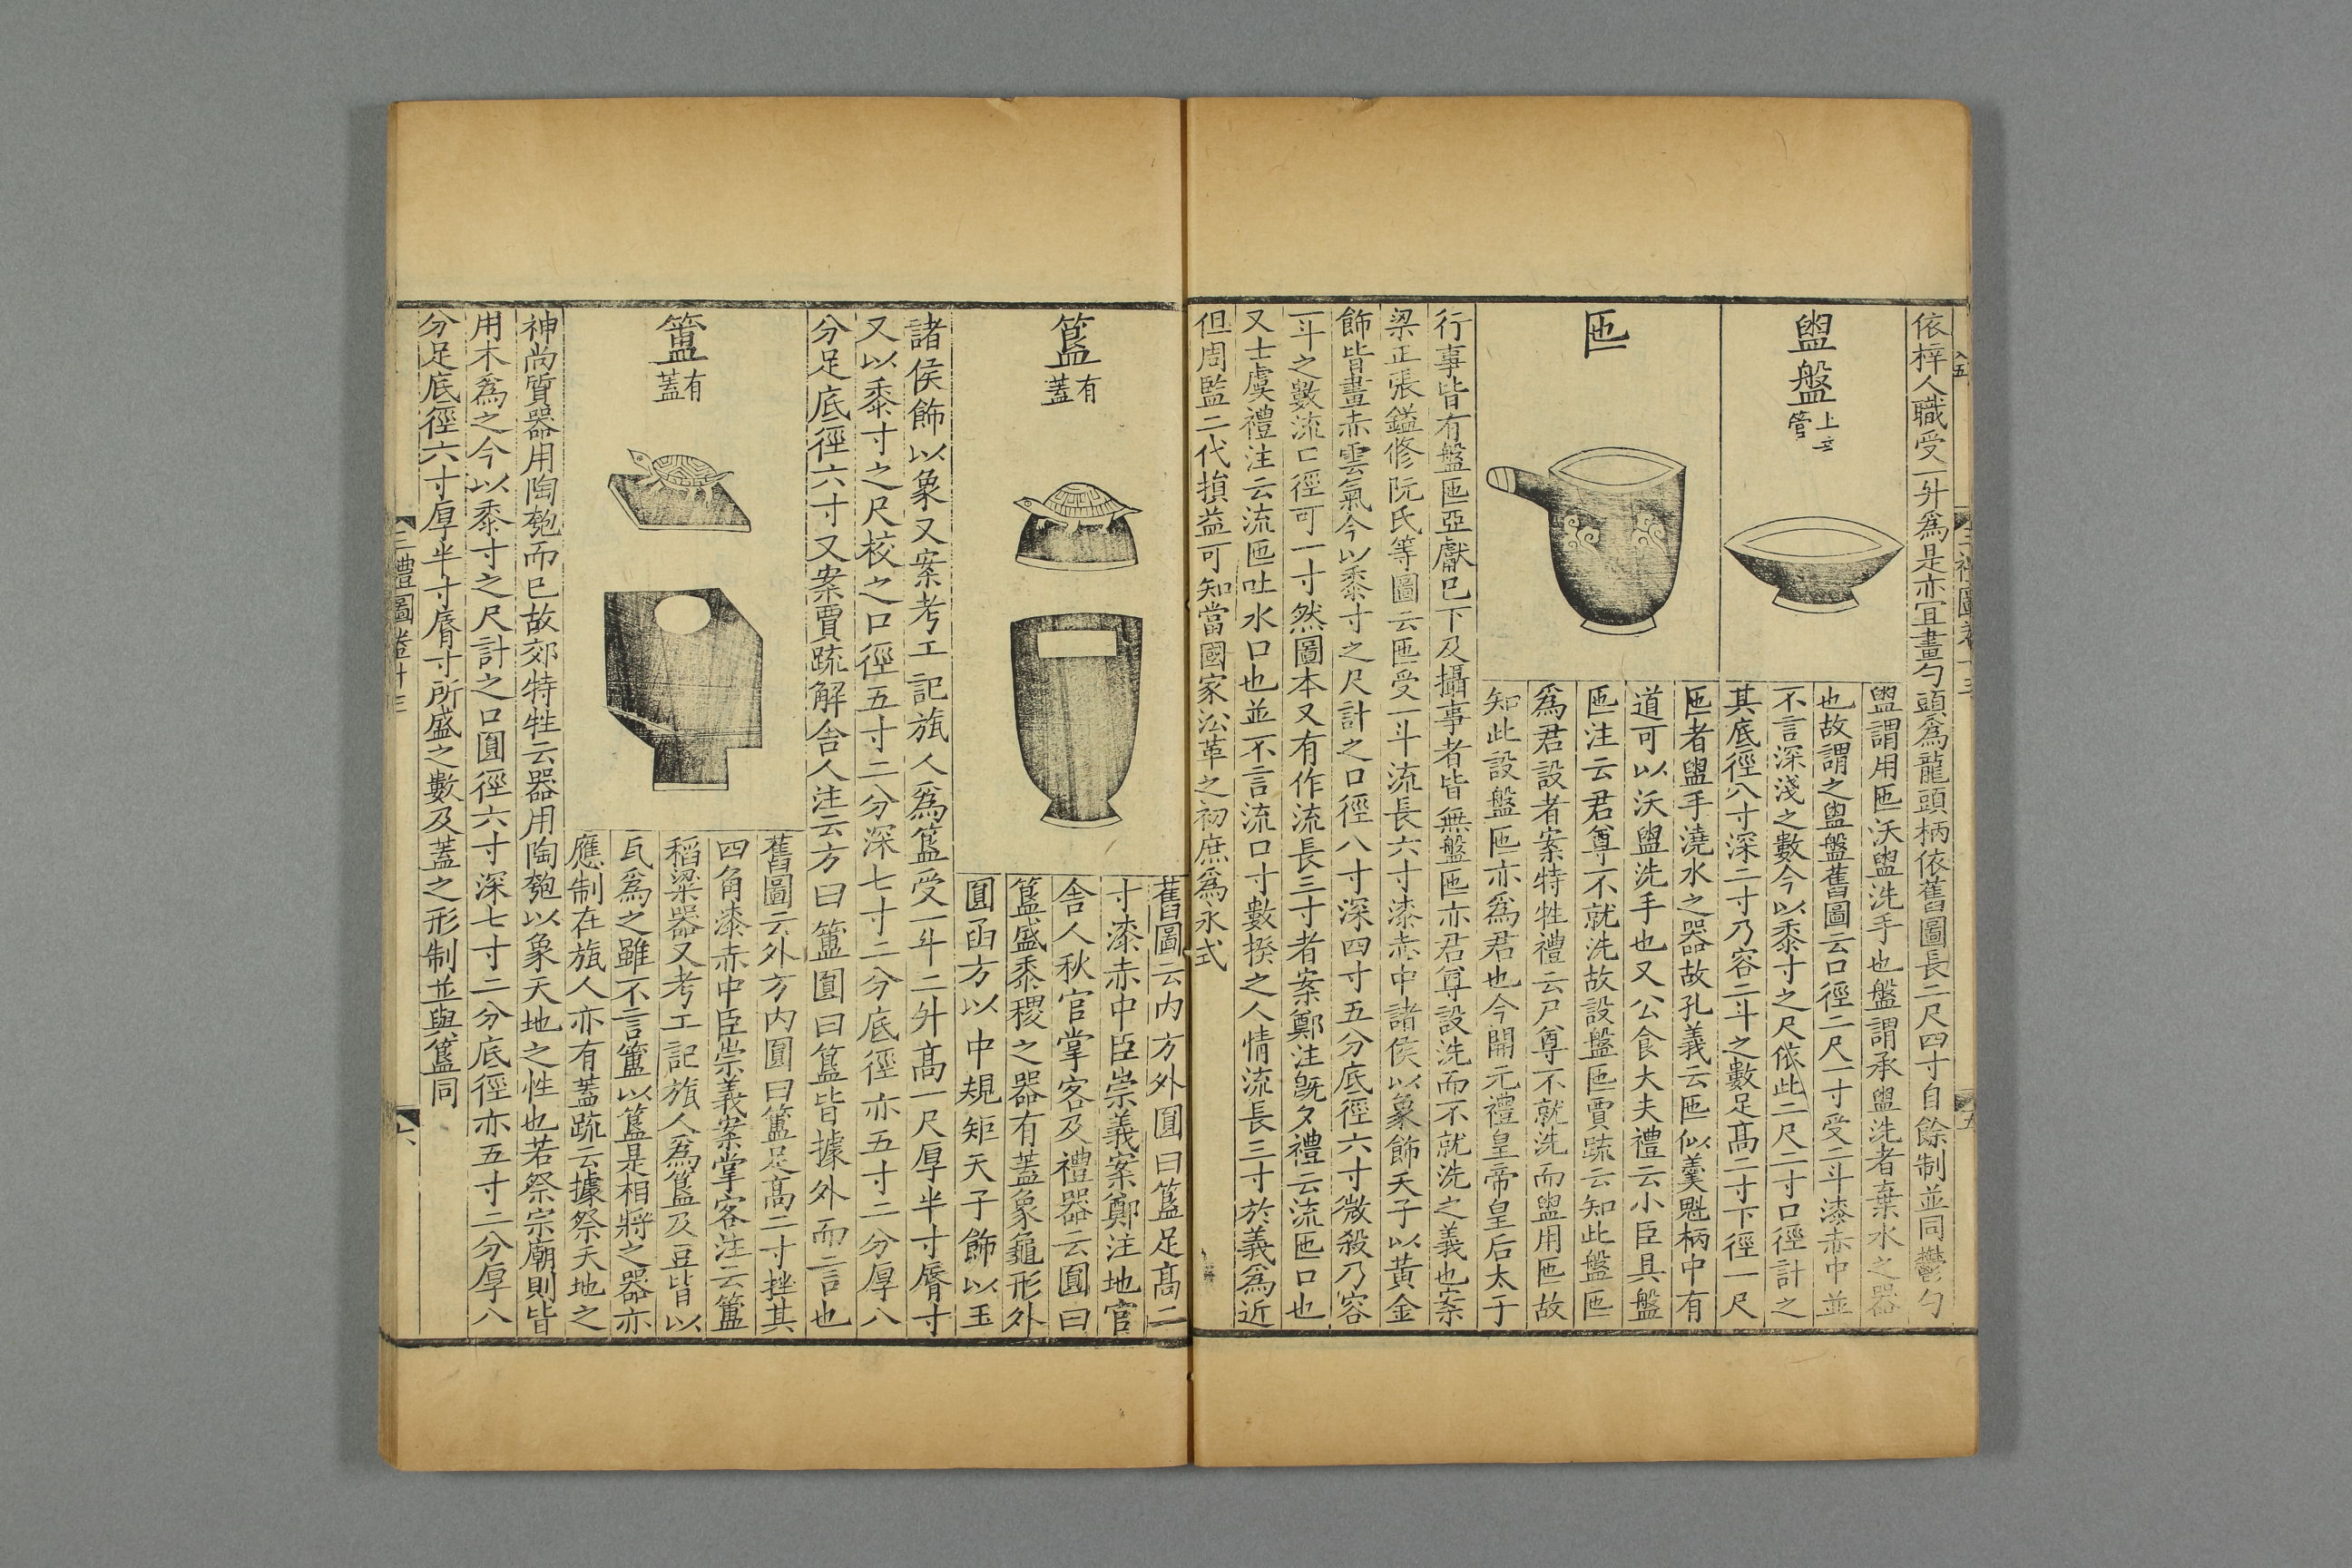 依梓人職受一升爲是亦宜畫勺頭爲龍頭柄依舊圖長二尺四寸自餘制並同鬱勺
盥盤
上音
管
盥謂用匜沃盥洗手也盤謂承盥洗者棄水之器
也故謂之盥盤舊圖云口徑二尺一寸受二斗漆赤中並
不言深淺之數今以黍寸之尺依此二尺二寸口徑計之
其底徑八寸深二寸乃容二斗之數足髙二寸下徑一尺
匜
匜者盥手澆水之器故孔義云匜似羹魁柄中有
道可以沃盥洗手也又公食大夫禮云小臣具盤
匜注云君尊不就洗故設盤匜賈疏云知此盤匜
爲君設者案特牲禮云尸尊不就洗而盥用匜故
知此設盤匜亦爲君也今開元禮皇帝皇后太子
行事皆有盤匜亞獻已下及攝事者皆無盤匜亦君尊設洗而不就洗之義也案
梁正張鎰修阮氏等圖云匜受一斗流長六寸漆赤中諸侯以象飾天子以黃金
飾皆畫赤雲氣今以黍寸之尺計之口徑八寸深四寸五分底徑六寸微殺乃容
一斗之數流口徑可一寸然圖本又有作流長三寸者案鄭注旣夕禮云流匜口也
又士虞禮注云流匜吐水口也並不言流口寸數揆之人情流長三寸於義爲近
但周監二代損益可知當國家沿革之初庶爲永式
簋
有
蓋
舊圖云内方外圓曰簋足髙二
寸漆赤中臣崇義案鄭注地官
舍人秋官掌客及禮器云圓曰
簋盛黍稷之器有蓋象龜形外
圓函方以中規矩天子飾以玉
諸侯飾以象又案考工記旊人爲簋受一斗二升髙一尺厚半寸脣寸
又以黍寸之尺校之口徑五寸二分深七寸二分底徑亦五寸二分厚八
分足底徑六寸又案賈疏解舍人注云方曰簠圓曰簋皆據外而言也
簠
有
蓋
舊圖云外方内圓曰簠足髙二寸挫其
四角漆赤中臣崇義案掌客注云簠
稻粱器又考工記旊人爲簋及豆皆以
瓦爲之雖不言簠以簋是相將之器亦
應制在旊人亦有蓋疏云據祭天地之
神尚質器用陶匏而已故郊特牲云器用陶匏以象天地之性也若祭宗廟則皆
用木爲之今以黍寸之尺計之口圓徑六寸深七寸二分底徑亦五寸二分厚八
分足底徑六寸厚半寸脣寸所盛之數及蓋之形制並與簋同
三禮圖卷十三
六